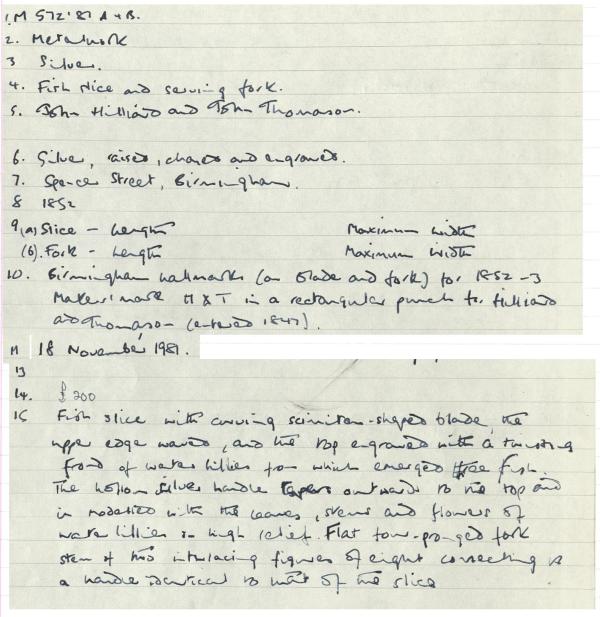 1. M 572'87 A & B.
2. Metalwork
3 Silver.
4. Fish slice and serving fork.
5. John Hilliard and John Thomason.
6. Silver, raised, chased and engraved.
7. Spencer Street, Birmingham.
8 1852
9 (a) Slice - Length Maximum width
(b). Fork - Length Maximum width
10. Birmingham hallmarks (on blade and fork) for 1852-3
Makers' mark H & T in a rectangular punch for Hilliard
and Thomason (entered 1847).
11 18 November 1987.
13
14. £200
15 Fish slice with curving scimitar-shaped blade, the
upper edge waved, and the top engraved with a twisting
frond of water lillies from which emerged fish.
The hollow silver handle tapers outwards to the top and
is modelled with the leaves, stems and flowers of
water lillies in high relief. Flat four-pronged fork
stem of two interlacing figures of eight connecting to
a handle identical to that of the slice